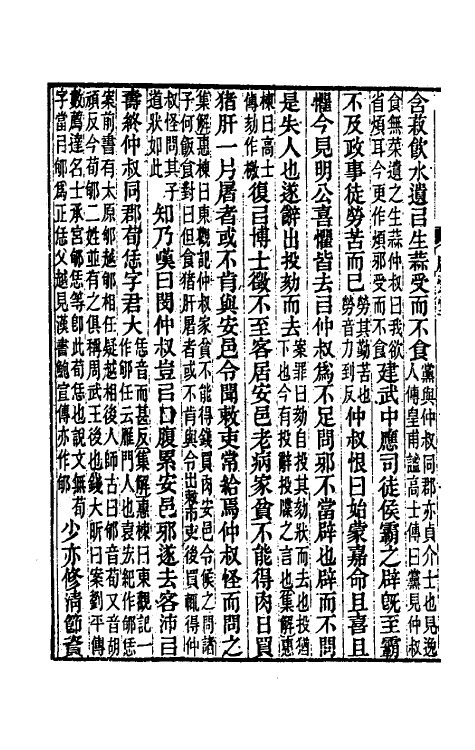 含菽飲水遺㠯生蒜受而不食黨與仲叔同郡亦貞介士也見逸人傳皇甫謐高士傳曰黨見仲叔
食無菜遺之生蒜仲叔曰我欲省煩耳今更作煩邪受而不食建武中應司徒侯霸之辟旣至霸
不及政事徒勞苦而已勞其勤苦也勞音力到反仲叔恨曰始蒙嘉命且喜且
懼今見明公喜懼皆去㠯仲叔爲不足問邪不當辟也辟而不問
是失人也遂辭出投劾而去案罪曰劾自投其劾狀而去也投猶下也今有投辭投牒之言也集解惠
棟曰高士傳劾作檄復㠯博士徵不至客居安邑老病家貧不能得肉日買
猪肝一片屠者或不肯與安邑令聞敕吏常給焉仲叔怪而問之
集解惠棟曰東觀記仲叔家貧不能得錢買肉安邑令候之問諸子何飯食對曰但食猪肝屠者或不肯與令出敕市吏後買輒得仲
叔怪問其子道狀如此知乃嘆曰閔仲叔豈㠯口腹累安邑邪遂去客沛㠯
壽終仲叔同郡荀恁字君大恁音而甚反集解惠棟曰東觀記一作郇任云雁門人也袁宏紀作郇恁
案前書有太原郇越郇相任疑越相後人師古曰郇音荀又音胡頑反今荀郇二姓並有之俱稱周武王後也錢大昕曰案劉平傳
數薦達名士承宮郇恁等卽此荀恁也說文無荀字當㠯郇爲正恁父越見漢書鮑宣傳亦作郇少亦修清節資